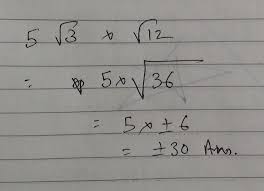 5 √3 × √12
= 5 × √36
= 5 × ± 6
= ±30 Ans.